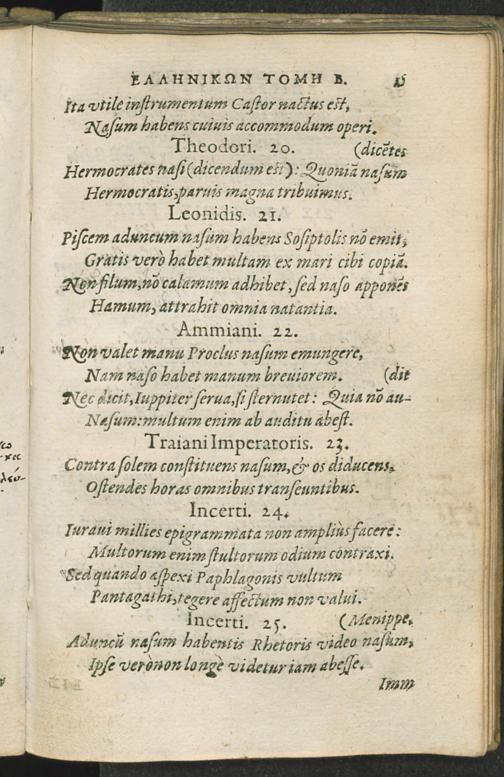 ΕΛΛΗΝΙΚΩΝ ΤΟΜΗ Β. 15
Ita vtile instrumentum Castor nactus est,
Nasum habens cuiuis accommodum operi.
Theodori. 20. (dicẽtes
Hermocrates nasi (dicendum est): Quoniã nasum
Hermocratis, paruis magna tribuimus.
Leonidis. 21.
Piscem aduncum nasum habens Sosiptolis nõ emit,
Gratis verò habet multam ex mari cibi copiã.
Non filum, nõ calamum adhibet, sed naso appones
Hamum, attrahit omnia natantia.
Ammiani. 22.
Non valet manu Proclus nasum emungere,
Nam naso habet manum breuiorem. (dit
Nec dicit, Iuppiter serua, si sternutet: Quia nõ au-
Nasum: multum enim ab auditu abest.
Traiani Imperatoris. 23.
Contra solem constituens nasum, & os diducens,
Ostendes horas omnibus transeuntibus.
Incerti. 24.
Iuraui millies epigrammata non ampliùs facere:
Multorum enim stultorum odium contraxi.
Sed quando aspexi Paphlagonis vultum
Pantagathi, tegere affectum non valui.
Incerti. 25. (Menippe,
Aduncũ nasum habentis Rhetoris video nasum,
Ipse verò non longè videtur iam abesse.
Imm